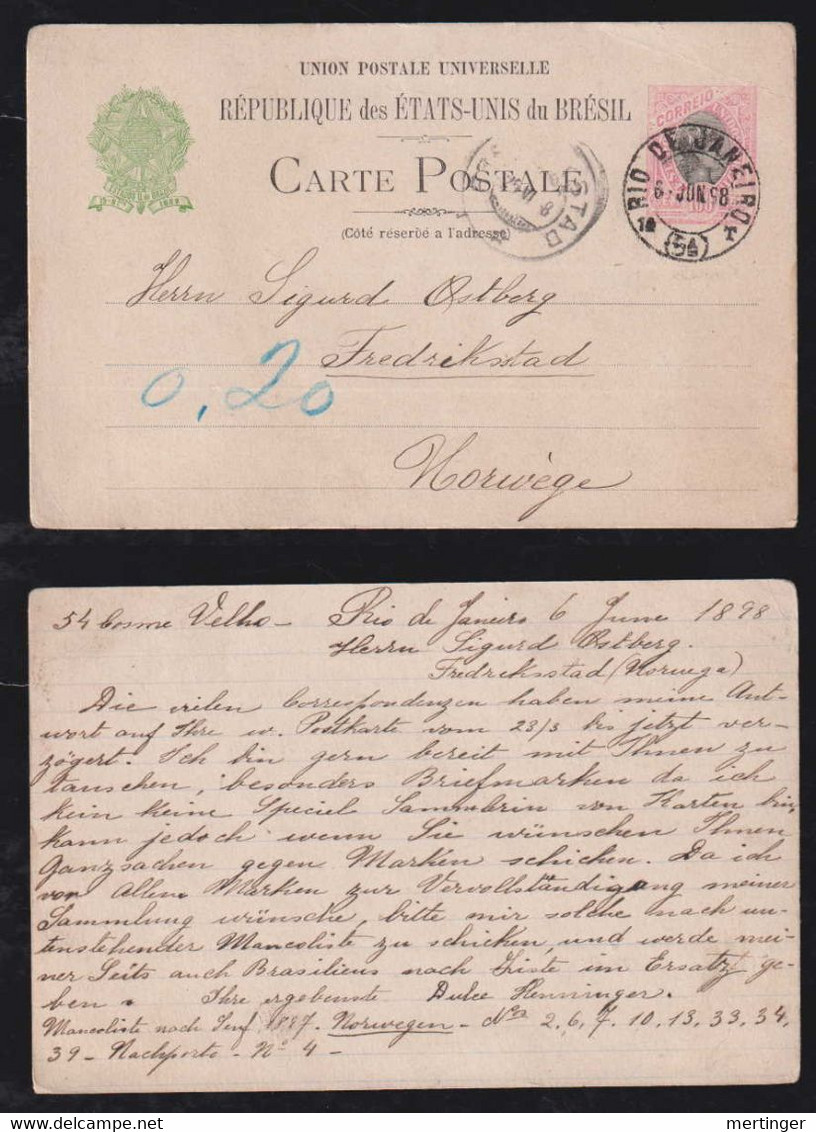 UNION POSTALE UNIVERSELLE
RÉPUBLIQUE des ÉTATS-UNIS du BRÉSIL
CARTE POSTALE
(Côté réservé a l'adresse)
CORREIO
RIO DE JANEIRO
6-JUN 98
STAD
8
Herrn Sigurd Ostberg
Fredriksstad
0,20
Norwège
54 Cosme Velho - Rio de Janeiro 6 June 1898
Herrn Sigurd Ostberg.
Fredricksstad (Noruega)
Die vielen Correspondenzen haben meine Ant-
wort auf Ihre w. Postkarte vom 23/3 bis jetzt ver-
zögert. Ich bin gern bereit mit Ihnen zu
tauschen, besonders Briefmarken da ich
kein keine Special Sammlerin von Karten bin,
kann jedoch wenn Sie wünschen Ihnen
Ganzsachen gegen Marken schicken. Da ich
vor Allem Marken zur Vervollständigung meiner
Sammlung wünsche, bitte mir solche nach un-
tenstehender Mancoliste zu schicken, und werde mei-
ner Seits auch Brasiliens nach Liste im Ersatz ge-
ben. Ihre ergebenste Dulce Henninger.
Mancoliste nach Senf 1887. Norwegen - Nos 2, 6, 7, 10, 13, 33, 34,
39 - Nachporto - No 4 -
mertinger